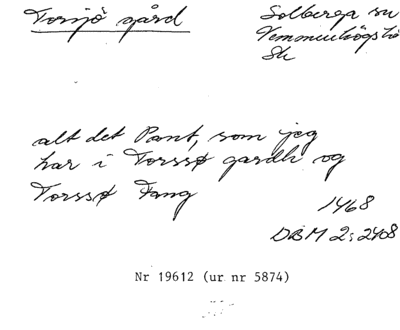 Torsjö gård
Solberga sn
Vemmenhögs hd
Sk
alt det Pant, som jeg
har i Torssø gardh og
Torssø Fang
1468
DBM 2:2408
Nr 19612 (ur nr 5874)